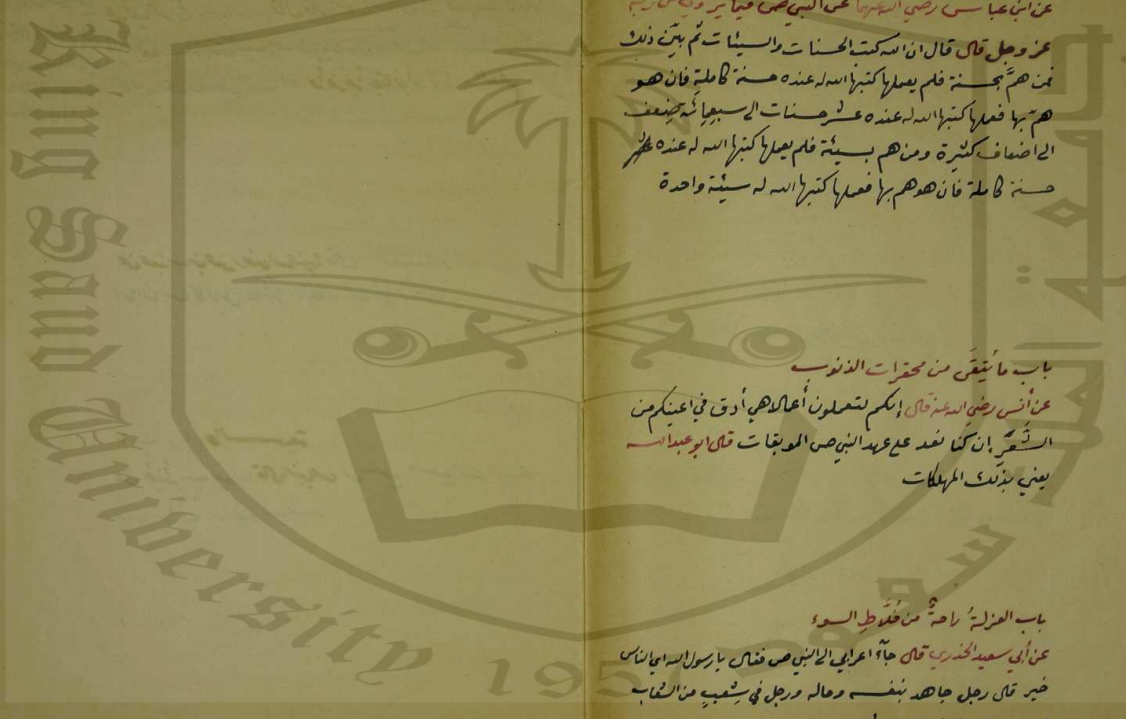 عن ابن عباس رضي الله عنهما عن النبي ص فيما يروي عن ربه
عز وجل قال قال ان الله كتب الحسنات والسيئات ثم بيّن ذلك
فمن همَّ بحسنة فلم يعملها كتبها الله له عنده حسنة كاملة فان هو
همّ بها فعملها كتبها الله له عنده عشر حسنات الى سبعمائة ضعف
الى اضعاف كثيرة ومن هم بسيئة فلم يعملها كتبها الله له عنده
حسنة كاملة فان هو هم بها فعملها كتبها الله له سيئة واحدة
باب ما يُتقَى من محقرات الذنوب
عن أنس رضي الله عنه قال إنكم لتعملون أعمالا هي أدق في اعينكم من
الشَّعَر إن كنا نعد على عهد النبي ص الموبقات قال ابو عبد الله
يعني بذلك المهلكات
باب العزلةُ راحةٌ من خُلَّاطِ السوء
عن أبي سعيد الخدري قال جآء اعرابي الى النبي ص فقال يا رسول الله اي الناس
خير قال رجل جاهد بنفسه وماله ورجل في شِعبٍ من الشعاب
King Saud University 1957
جامعة الملك سعود